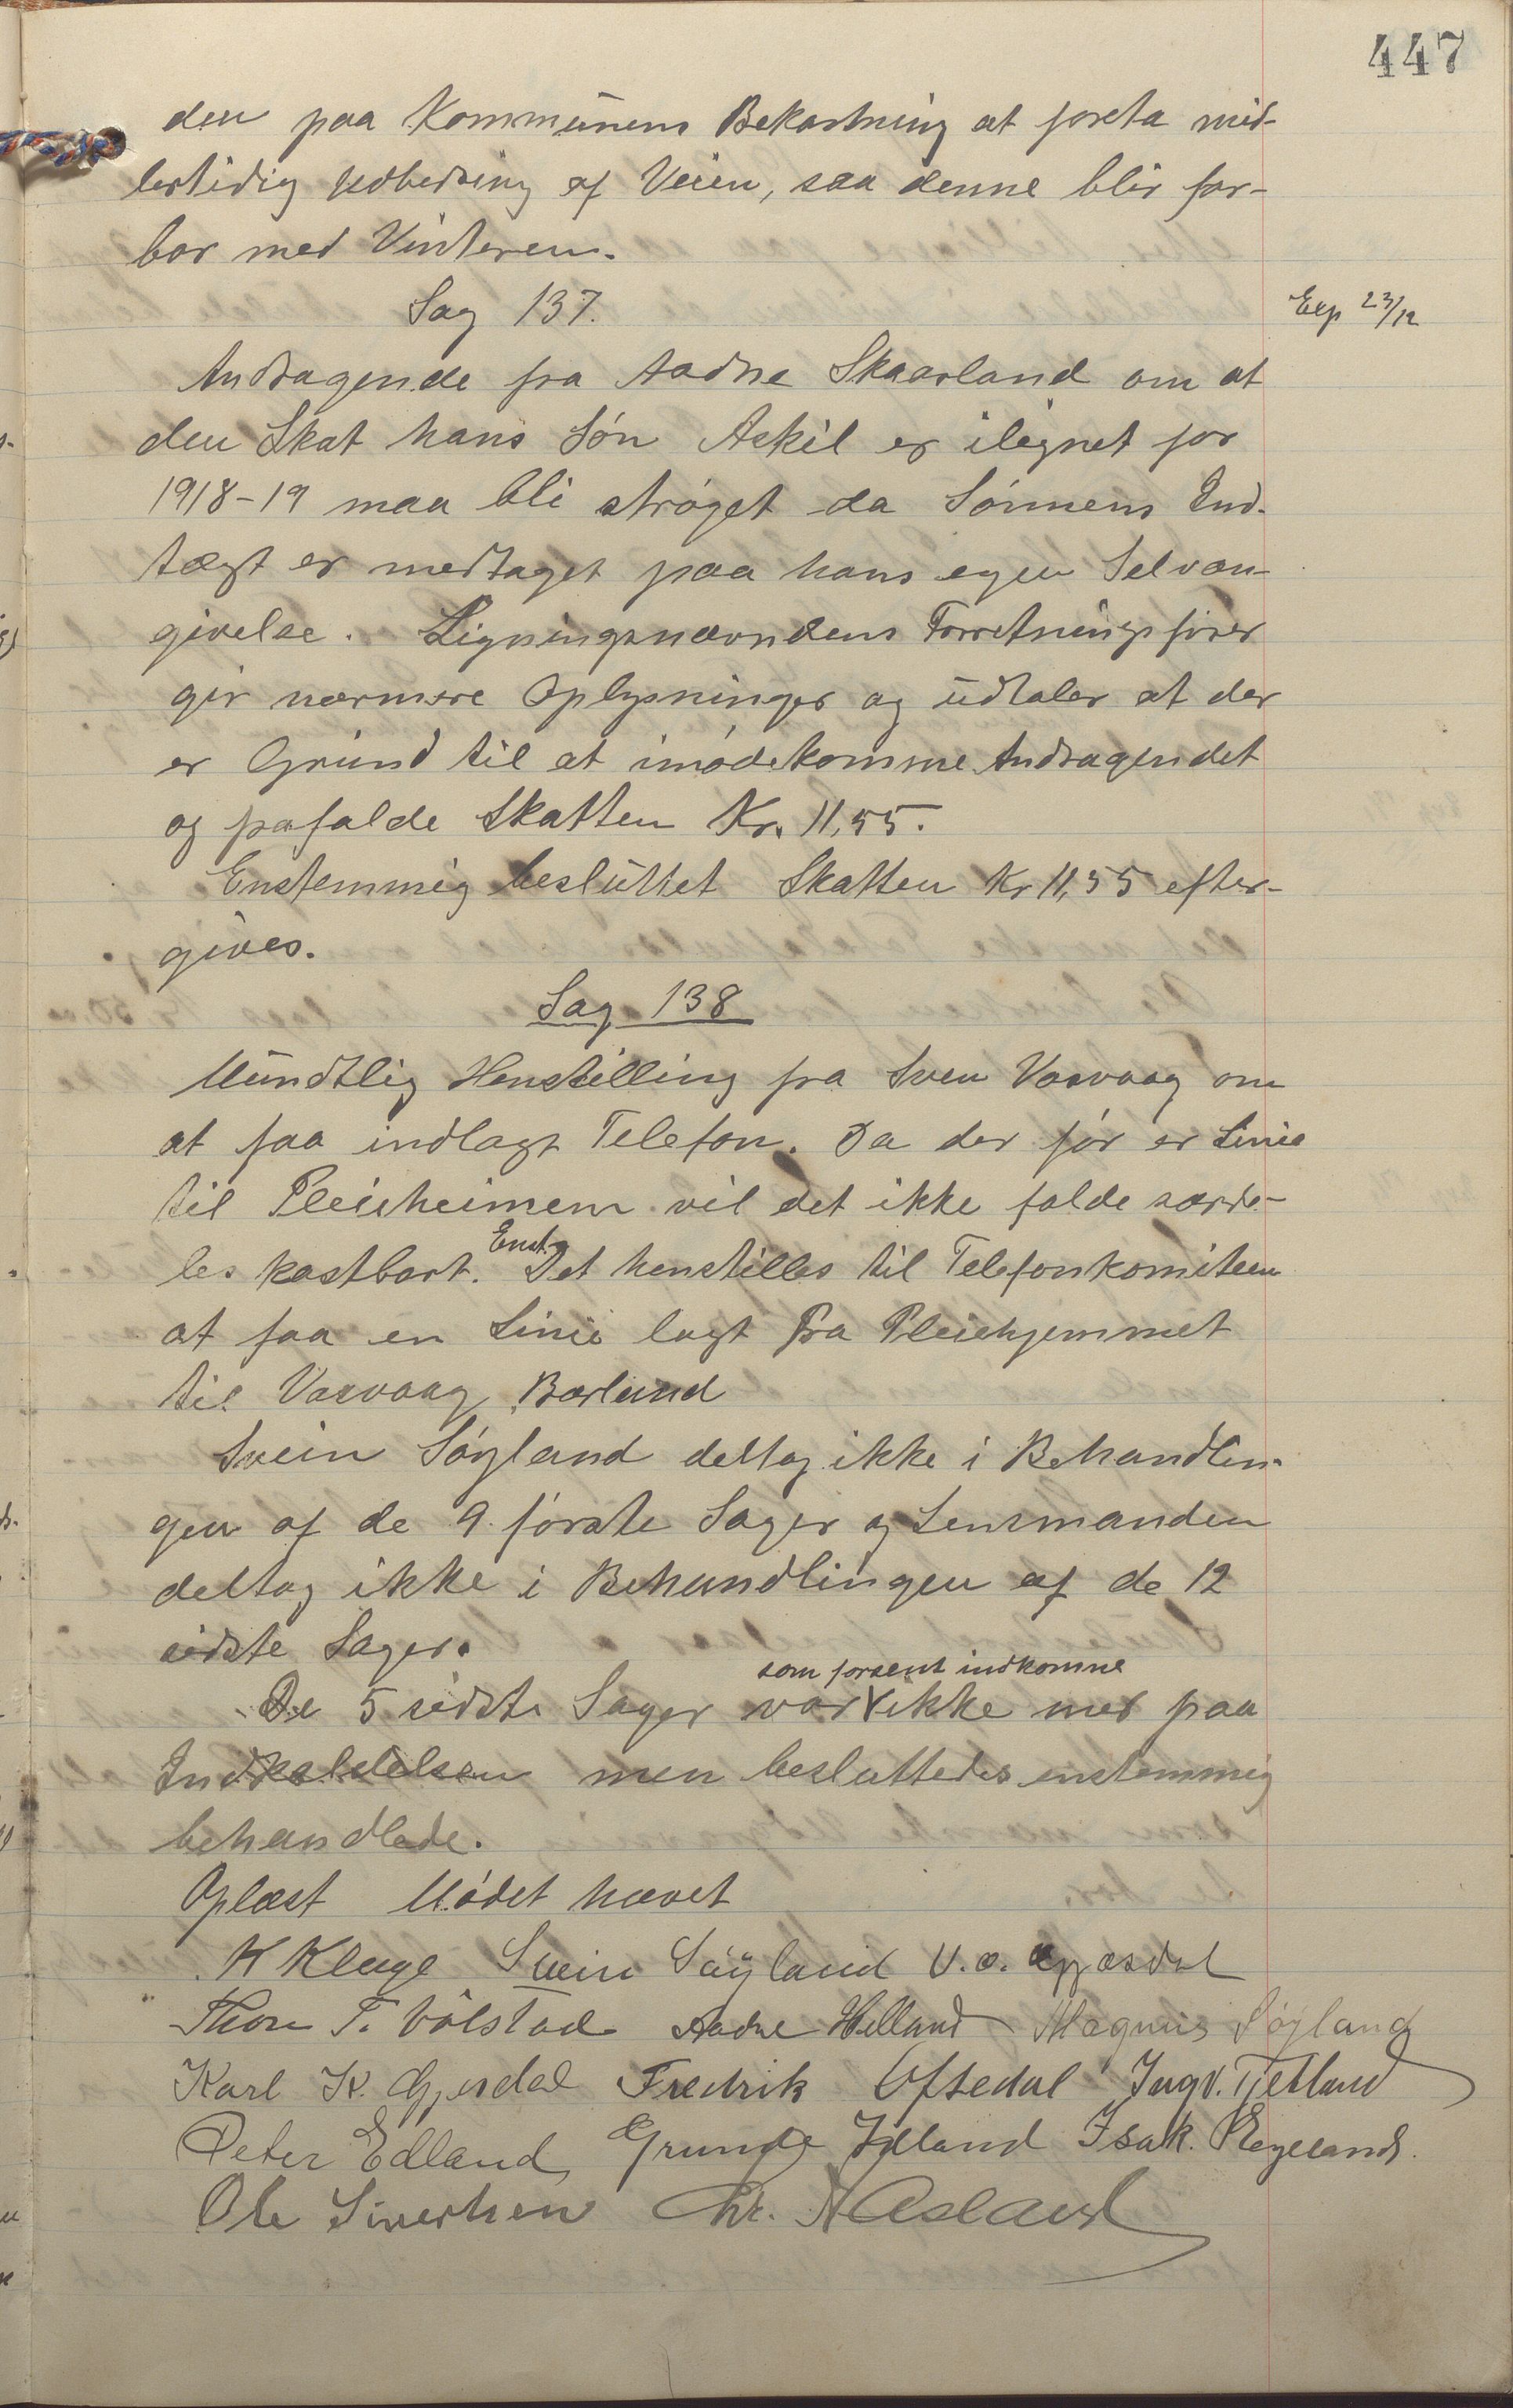 447
den paa Kommunens Bekostning at foreta mid-
lertidig Udbedring af Veien, saa denne blir far-
bar med Vinteren.
Sag 137.
Exp 23/12
Andragende fra Aadne Skaarland om at
den Skat hans Søn Askil er ilignet for
1918-19 maa bli strøget da Sønnens Ind-
tægt er medtaget paa hans egen Selvan-
givelse. Ligningsnævndens Forretningsfører
gir nærmere Oplysninger og udtaler at der
er Grund til at imødekomme Andragendet
og frafalde Skatten Kr. 11,55.
Enstemmig besluttet Skatten Kr 11,55 efter-
gives.
Sag 138
Mundtlig Henstilling fra Sven Vasvaag om
at faa indlagt Telefon. Da der før er Linie
til Pleieheimem vil det ikke falde særde-
les kostbart. Enst. Det henstilles til Telefonkomiteen
at faa en Linie lagt fra Pleiehjemmet
til Vasvaag, Børland
Svein Søyland deltog ikke i Behandlin-
gen af de 9 første Sager og Lensmanden
deltog ikke i Behandlingen af de 12
sidste Sager.
som forsent indkomne
De 5 sidste Sager var ikke med paa
Indkaldelsen men besluttedes enstemmig
behandlede.
Oplæst Mødet hævet
K Kluge Svein Söyland
Thore T. Vølstad Aadne Helland Magnus Søyland
Karl K. Gjesdal Fredrik Oftedal Ingv. Tjetland
Peter Edland Grunde Isak.
Ole Sivertsen Chr. A Aasland